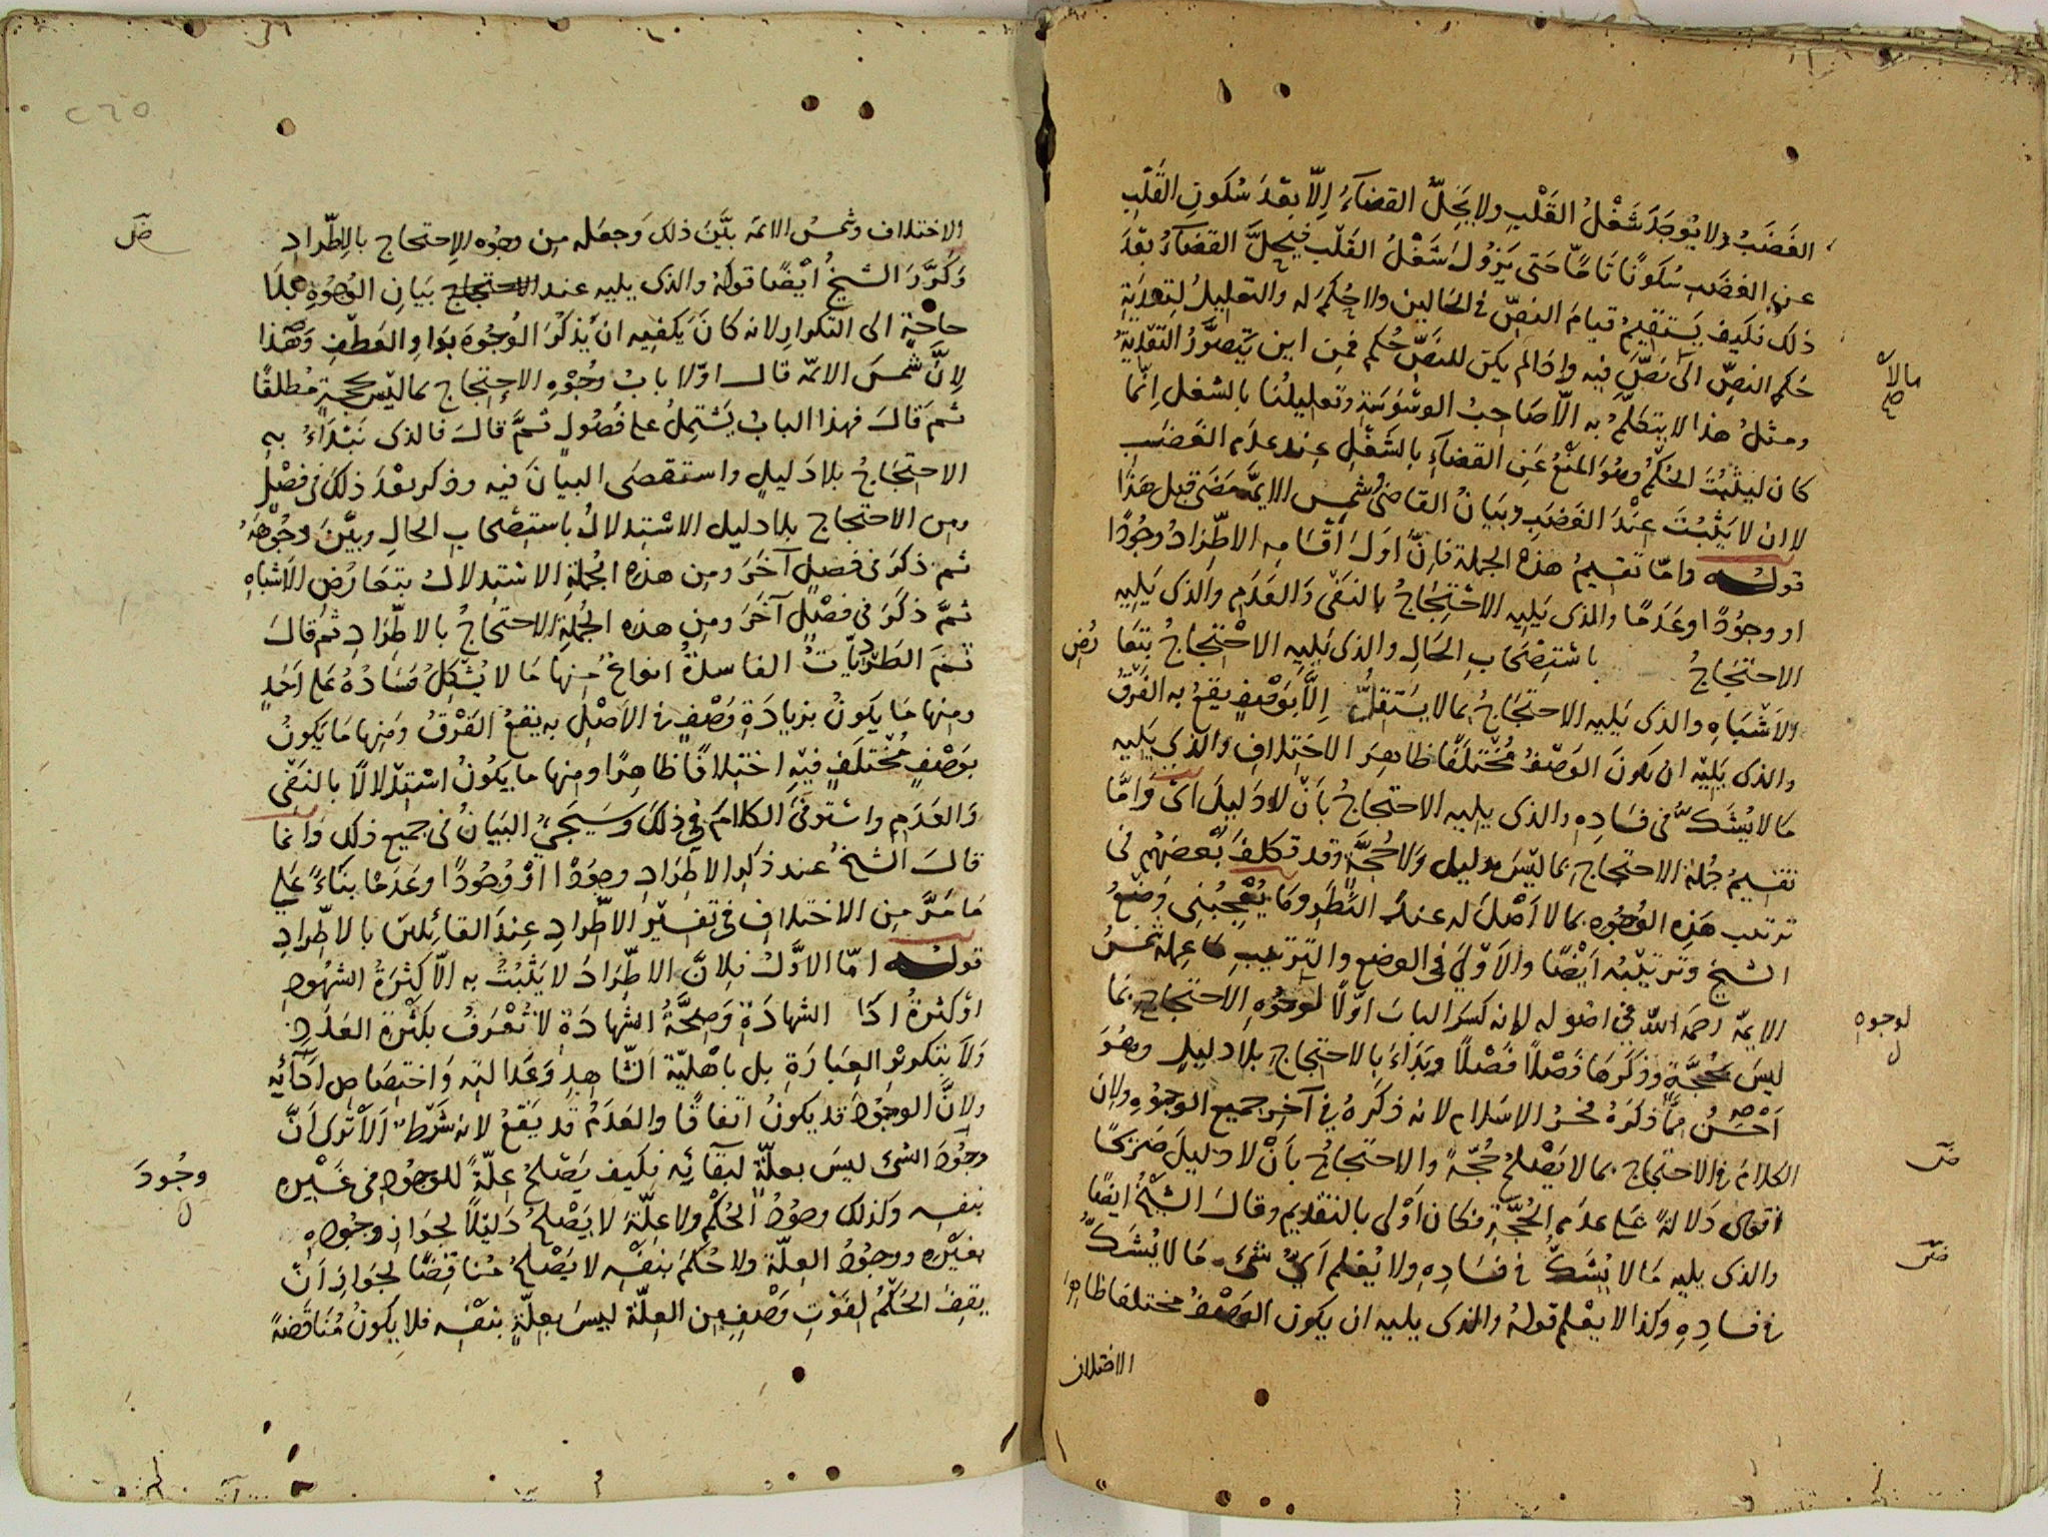 الغَضَبُ ولا يُوجَدَ شَغْلُ القَلْبِ ولا يَحِلُّ القضآءُ اِلّا بَعْدَ سُكَونِ القَلْبِ
عن الغضَبِ سُكَونًا تَامًّا حَتى يَزُولَ شَغْلُ القَلْبِ فيَحِلَّ القضآءُ بَعْدَ
ذلك فكيف يَستقيمُ قيامَ النصِّ في الحَالين ولا حُكمَ له والتعليلُ لِتعدِيَةِ
حُكمِ النصِّ الى مَا لا نَصَّ فيه واذا لم يكن للنَصِّ حُكم فمِن اين يَتصوَّرُ التعْدِيَةُ
ومثلُ هذا لا يتكلّمُ به الّا صَاحِبُ الوسْوَسَةِ وتعليلُنا بالشغل اِنّما
كان ليثْبُتَ الحُكمُ وهُوَ المنْعُ عَنِ القضآءِ بالشَغْلِ عِند عدَم الغَضَبِ
لا ان لا يَثْبُتَ عِنْدَ الغَضَبِ وبَيَانُ القاضى شمس الايمّة مَضَى قبل هَذا
قولـه وامّا تقسِيمُ هذه الجملة فاِنَّ اوّلَ أقْسَامِه الاطّرادُ وجُودًا
او وجوُدًا وعَدَمًا والذى يَلِيه الاحْتِجَاجُ بالنفى وَالعَدَمِ والذى يَلِيه
الاحتِجَاجُ باسْتِصْحَابِ الحَالِ والذى يَلِيهِ الاحْتِجاجُ بتَعَارُضِ
الاَشْبَاهِ والذى يَليه الاحتِجَاجُ بمالا يَسْتَقلُّ اِلَّا بوَصْفٍ يقعُ به الفَرْقُ
والذى يَلِيْه ان يكونَ الوَصْفُ مُخْتلَفًا ظاهِرَ الاختلافِ والذى يَليه
مَا لا يُشَكّ في فسَادِه والذى يليه الاحتجاجُ بأنْ لا دَلِيلَ اىْ وَامَّا
تقسِيمُ جُملة الاحتجاج بما ليْسَ بدليل وَلا حُجّةٍ وقد تكلفَ بَعْضهُم في
ترتيب هَذِه الوُجُوه بما لا أصْلَ له عند النَّظَر وما يُعْجِبُنى وَضْعُ
الشيخ وَترتيْبُه اَيْضًا والأوْلَى في الوضع والتَّرتيبِ مَا عمله شمسُ
الايمّة رحمه اللّه في اصُوله لاِنه كسَر البابَ اوّلًا لوُجُوهِ الاحتجاجِ بمَا
ليسَ بحُجّةٍ وذكَرهَا فَصْلًا فَصْلًا وبَدَأَ بالاحتِجاجِ بلا دليلٍ وهُوَ
اَحْسَنُ ممّا ذكرَهُ فخرُ الاسلام لانه ذكَرهُ في آخرِ جميع الوجُوهِ ولانّ
الكلامَ في الاحتجاج بما لا يَصْلحُ حُجّةً والاحتجاجُ بأنْ لا دليلَ صَريحًا
اَقوى دَلالةً عَلى عدَم الحُجّةِ فكان اَوْلى بالتقديم وقالَ الشيْخُ ايضًا
والذى يليه مَا لا يُشَكّ في فسَادِهِ ولا يُعْلم أيُّ شىءٍ مَا لا يُشَكّ
في فسادِهِ وكذا لا يعْلم قولهُ والذى يليه ان يكون الوَصْفُ مختلفا ظاهِرَ
الاختلاف
مالا
صح
لوجوه
ل
الاختلاف وشمسُ الائمة بيَّنَ ذلك وَجعَله مِن وجُوه الاِحتجاج بالاِطّرادِ
وَكرَّرَ الشيخُ ايْضًا قولهُ والذى يليه عند الاحتجاج بيَانِ الوُجوُهِ بلَا
حاجَةٍ الى التكرارِ لانه كانَ يَكفِيه ان يَذكرَ الوُجُوهَ بوَاو العَطْفِ وهَذا
لِانَّ شَمسَ الائمّة قالَ اوّلا بابُ وُجُوهِ الاِحتِجاج بما ليْسَ بحجةٍ مُطلقًا
ثم قَالَ فهذا البابُ يَشْتمِلُ على فُصُولٍ ثمَّ قالَ فالذى نَبْدَأُ به
الاحتِجَاجُ بلا دَليلٍ واستقصَى البيَانَ فيه وذكر بعْدَ ذلكَ في فصْلٍ
ومن الاحتجاج بلا دليل الاسْتِدلالُ باستِصْحابِ الحالِ وبيَّنَ وجُوْهَهُ
ثم ذكرَ في فصلٍ آخَرَ ومِن هذه الجُملةِ الاسْتِدلالُ بتعَارُضِ الاَشْبَاهِ
ثمَّ ذكَرَ في فصْلٍ آخَرَ ومِن هذه الجُملةِ الاحتجاجُ بالاطِّرَادِ ثم قالَ
ثمَ الطَرْدِيّاتُ الفاسدةُ انواعٌ مِنها مَا لا يُشْكِلُ فسَادُهُ عَلى اَحَدٍ
ومنها مَا يَكونُ بزِيادَةِ وَصْفٍ في الاَصْلِ به يقعُ الفَرْقُ ومِنها مَا يَكونُ
بوَصْفٍ مُخْتَلَفٍ فيْهِ اختِلافًا ظاهِرًا ومِنها ما يَكونُ اسْتِدْلالًا بالنَفْى
وَالعَدَمِ واسْتَوفَى الكلامَ في ذلكَ وسَيَجيْءُ البَيَانُ في جميع ذلك وَانما
قالَ الشيخُ عند ذكرِ الاطّرَادِ وجوُدًا اوْ وُجُودًا وعَدَمًا بنَاءً عَلى
مَا مَرَّ مِن الاختلافِ في تفسيْر الاطّرادِ عِندَ القائلينَ بالاطِّرادِ
قولـه امّا الاوَّلُ فلِانَّ الاطّرادَ لا يَثْبُتُ به الّا كثرَةُ الشهُودِ
اوْ كثرةُ ادَا الشهادَةِ وَصِحَّةُ الشهادَةِ لا تُعْرَفُ بكَثرَةِ العَدَدِ
وَلا بتكريرِ العِبَارَةِ بل باَهْليّة الشّاهِدِ وَعَدَالتِه وَاختِصَاصِ اَدَآئِه
ولانَّ الوجُودَ قد يكونُ اتفاقًا والعَدَمُ قد يَقعُ لانه شَرْطٌ الَا تَرى اَنَّ
وجُودَ الشىْءِ ليسَ بعلّةٍ لبقآئِه فكيف يَصْلحُ علّةً للوجُودِ في غَيْرِه
بنفسِه وكذلك وجُودُ الحُكْم ولا علّةَ لا يَصْلحُ دَليْلًا لجَوَازِ وجُودِه
بغيْرِه ووجُودُ العِلّةِ ولا حُكمَ بنفْسِه لا يَصْلحُ مُناقِضًا لجَوَازِ اَنْ
يقفَ الحُكْمُ لفَوْتِ وَصْفٍ مِن العِلّةِ ليسَ بعِلّةٍ بنفْسِه فلا يَكونُ مُنَاقَضةً
وجُودَ
ل
٢٦٥